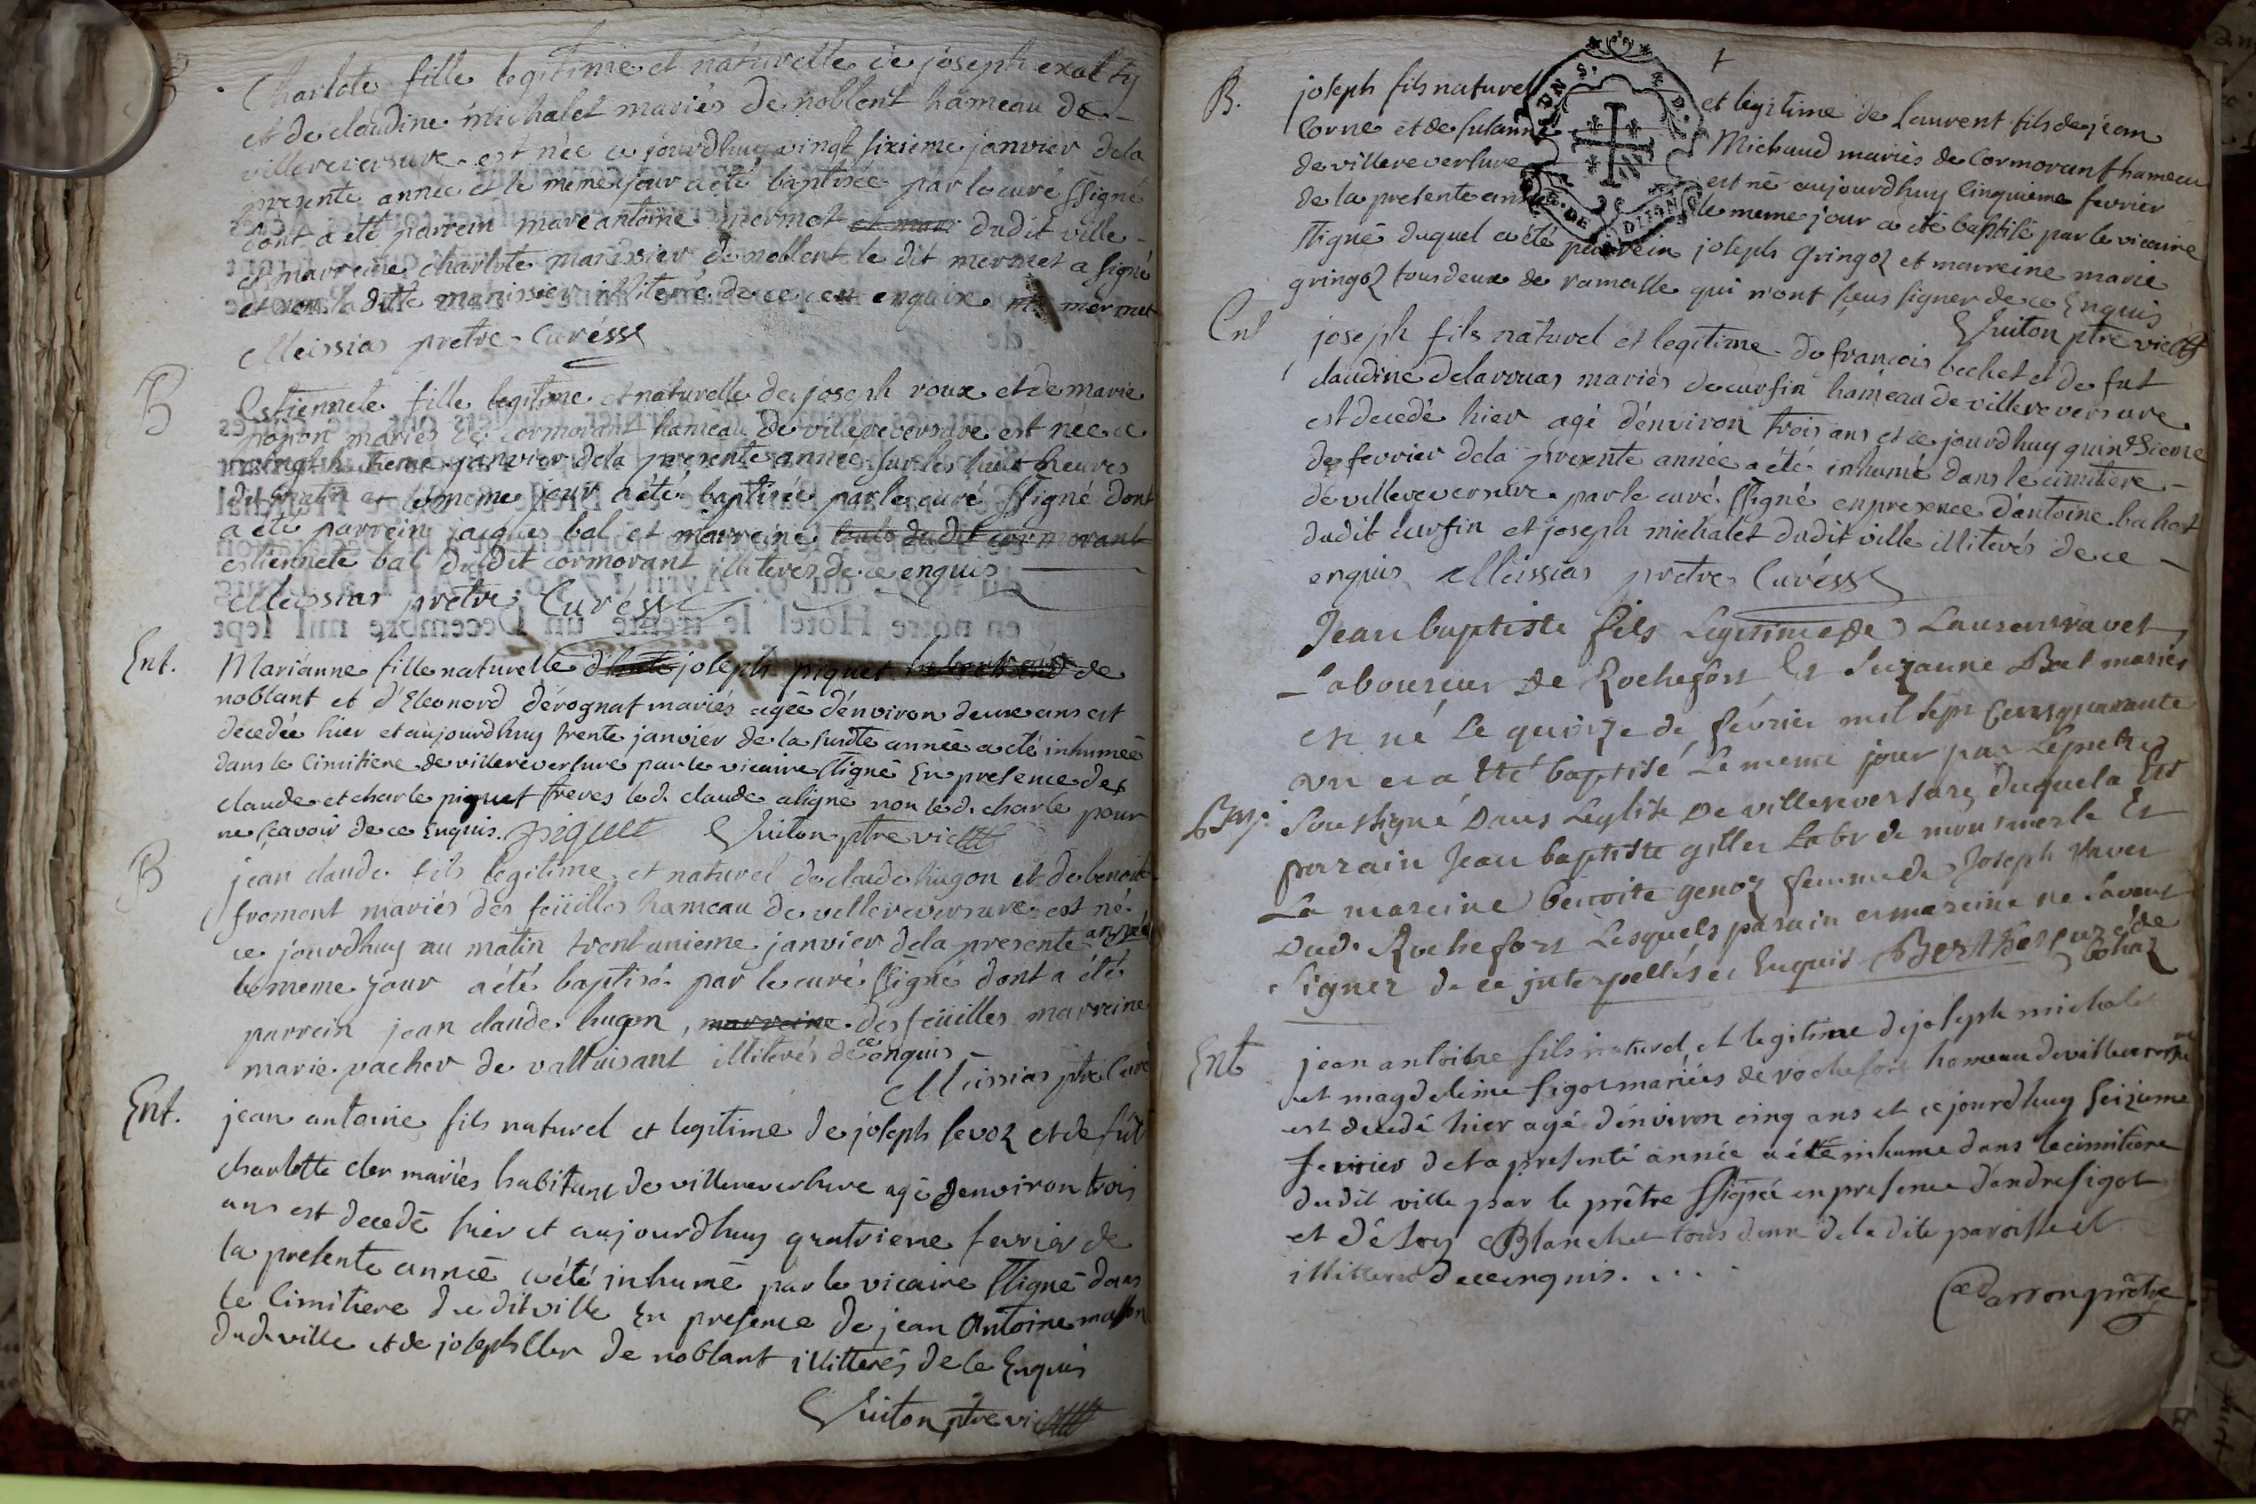 Charlote fille legitime et naturelle de joseph exaltij
et de claudine michalet mariés de noblent hameau de
villereversure est née ce jourdhuy vingt sixieme janvier dela
presente année et le meme jour a été baptisée par le curé ssigné
dont a été parrein marc antoine mermet dudit ville
et marreine charlote manissier de noblent le dit mermet a signé
et non la ditte manissier illiterée de ce enquise m mermet
Meissias pretre Curé ss
B
Estiennete fille legitime et naturelle de joseph roux et de marie
popon mariés de cormorant hameau de villereversure est née ce
vingt huitieme janvier dela presente année sur les huit heures
du matin et le meme jour a été baptisée par le curé ssigné dont
a été parrein jacques bal et marreine tous dudit cormorant
estiennete bal dudit cormorant illiteres de ce enquis
Meissias pretre Curé ss
Ent.
Marianne fille naturelle joseph piquet de
noblant et d'Eleonord dérognat mariés agée d'environ deux ans est
decedée hier et aujourdhuy trente janvier de la susdte année a été inhumée
dans le Cimitiere de villereversure par le vicaire ssigné En presence de
claude et charle piquet freres led. claude a signé non led. charle pour
ne sçavoir de ce Enquis. piquet Guiton ptre vic
B
jean claude fils legitime et naturel de claude hugon et de benoite
froment mariés des feüilles hameau de villereversure est né
ce jourdhuy au matin trent unieme janvier dela presente année
le meme jour a été baptisé par le curé ssigné dont a été
parrein jean claude hugon, marreine des feüilles marreine
marie vacher de valluisant illiterés de ce enquis
Meissias ptre Curé
Ent.
jean antoine fils naturel et legitime de joseph sevoz et de fut
charlotte cler mariés habitans de villereversure agé denviron trois
ans est decedé hier et aujourdhuy quatrieme fevrier de
la presente année a été inhumé par le vicaire ssigné dans
le Cimitiere du dit ville En presence de jean Antoine masson
dud. ville et de joseph Cler de noblant illitterés de ce Enquis
Guiton ptre vic
B.
joseph fils naturel et legitime de Laurent fils de jean
Corne et de susanne Michaud mariés de Cormorant hameau
de villereversure est né aujourdhuy Cinquieme fevrier
de la presente année le meme jour a été baptisé par le vicaire
ssigné duquel a été parrein joseph Gringoz et marreine marie
gringoz tous deux de ramasse qui n'ont sçeus signer de ce Enquis
Guiton ptre vic
Ent
joseph fils naturel et legitime de françois bechet et de fut
claudine delarouas mariés de curfin hameau de villereversure
est decedé hier agé d'environ trois ans et ce jourdhuy quinzieme
de fevrier dela presente année a été inhumé dans le cimitere
de villereversure par le curé ssigné en presence d'antoine bahost
dudit Curfin et joseph michalet dudit ville illiterés de ce
enquis Meissias pretre Curé ss
Bap.
Jean baptiste fils Legitime De Laurent ravet
Laboureur De Rochefort Et Suzanne Bal mariés
Est né Le quinze de fevrier mil sept Cens quarante
un et a Eté baptisé Le meme jour par Le pretre
Soussigné Dans L'eglise De villereversure duquel a Eté
parrain Jean baptiste gilles Labr de montmerle Et
La mareine benoite genoz femme de Joseph Ravet
Dud. Rochefort Lesquels parain et mareine ne Savent
Signer de ce interpellés et Enquis Berthet curé de
bohaz
Ent
jean antoine fils naturel et legitime de joseph michalet
et magdeleine sigot mariés de rochefort hameau de villereversure
est decedé hier agé d'environ cinq ans et ce jourdhuy seizieme
fevrier de la presente année a été inhumé dans le cimitiere
dudit ville par le prêtre ssigné en presence d'andre sigot
et d'éloy Blanchet tous deux de la dite paroisse et
illitteres de ce enquis. . . . .
Darron prêtre